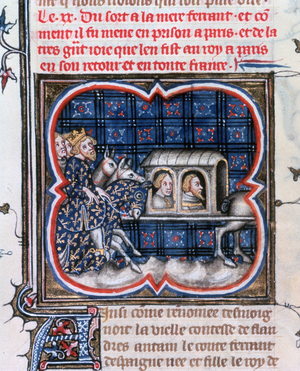 Le .xx. Du sort a la mere ferrant. et cō
ment il fu mene en prison a paris. et de la
tres grāt ioie que len fist au roy a paris
en son retour et en toute france.
Ainsi cōme renōmee tesmoig
noit la vielle contesse de flan
dres antain le conte ferrant
despaigne nee et fille le roy de